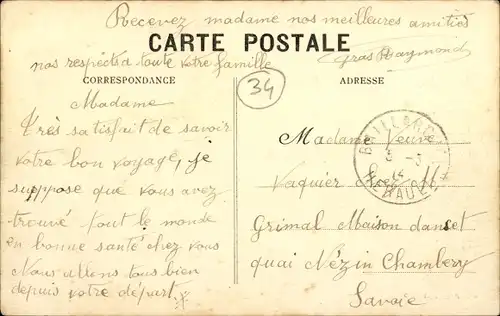 Recevez madame nos meilleures amitiés
CARTE POSTALE
nos respects a toute votre famille
Gras Raymond
CORRESPONDANCE
ADRESSE
34
Madame
Très satisfait de savoir
votre bon voyage, je
suppose que vous avez
trouvé tout le monde
en bonne santé chez vous
Nous allons tous bien
depuis votre départ.
HERAULT
Madame Veuve
Vaquier chez Mr
Grimal Maison danset
quai Nézin Chambery
Savoie